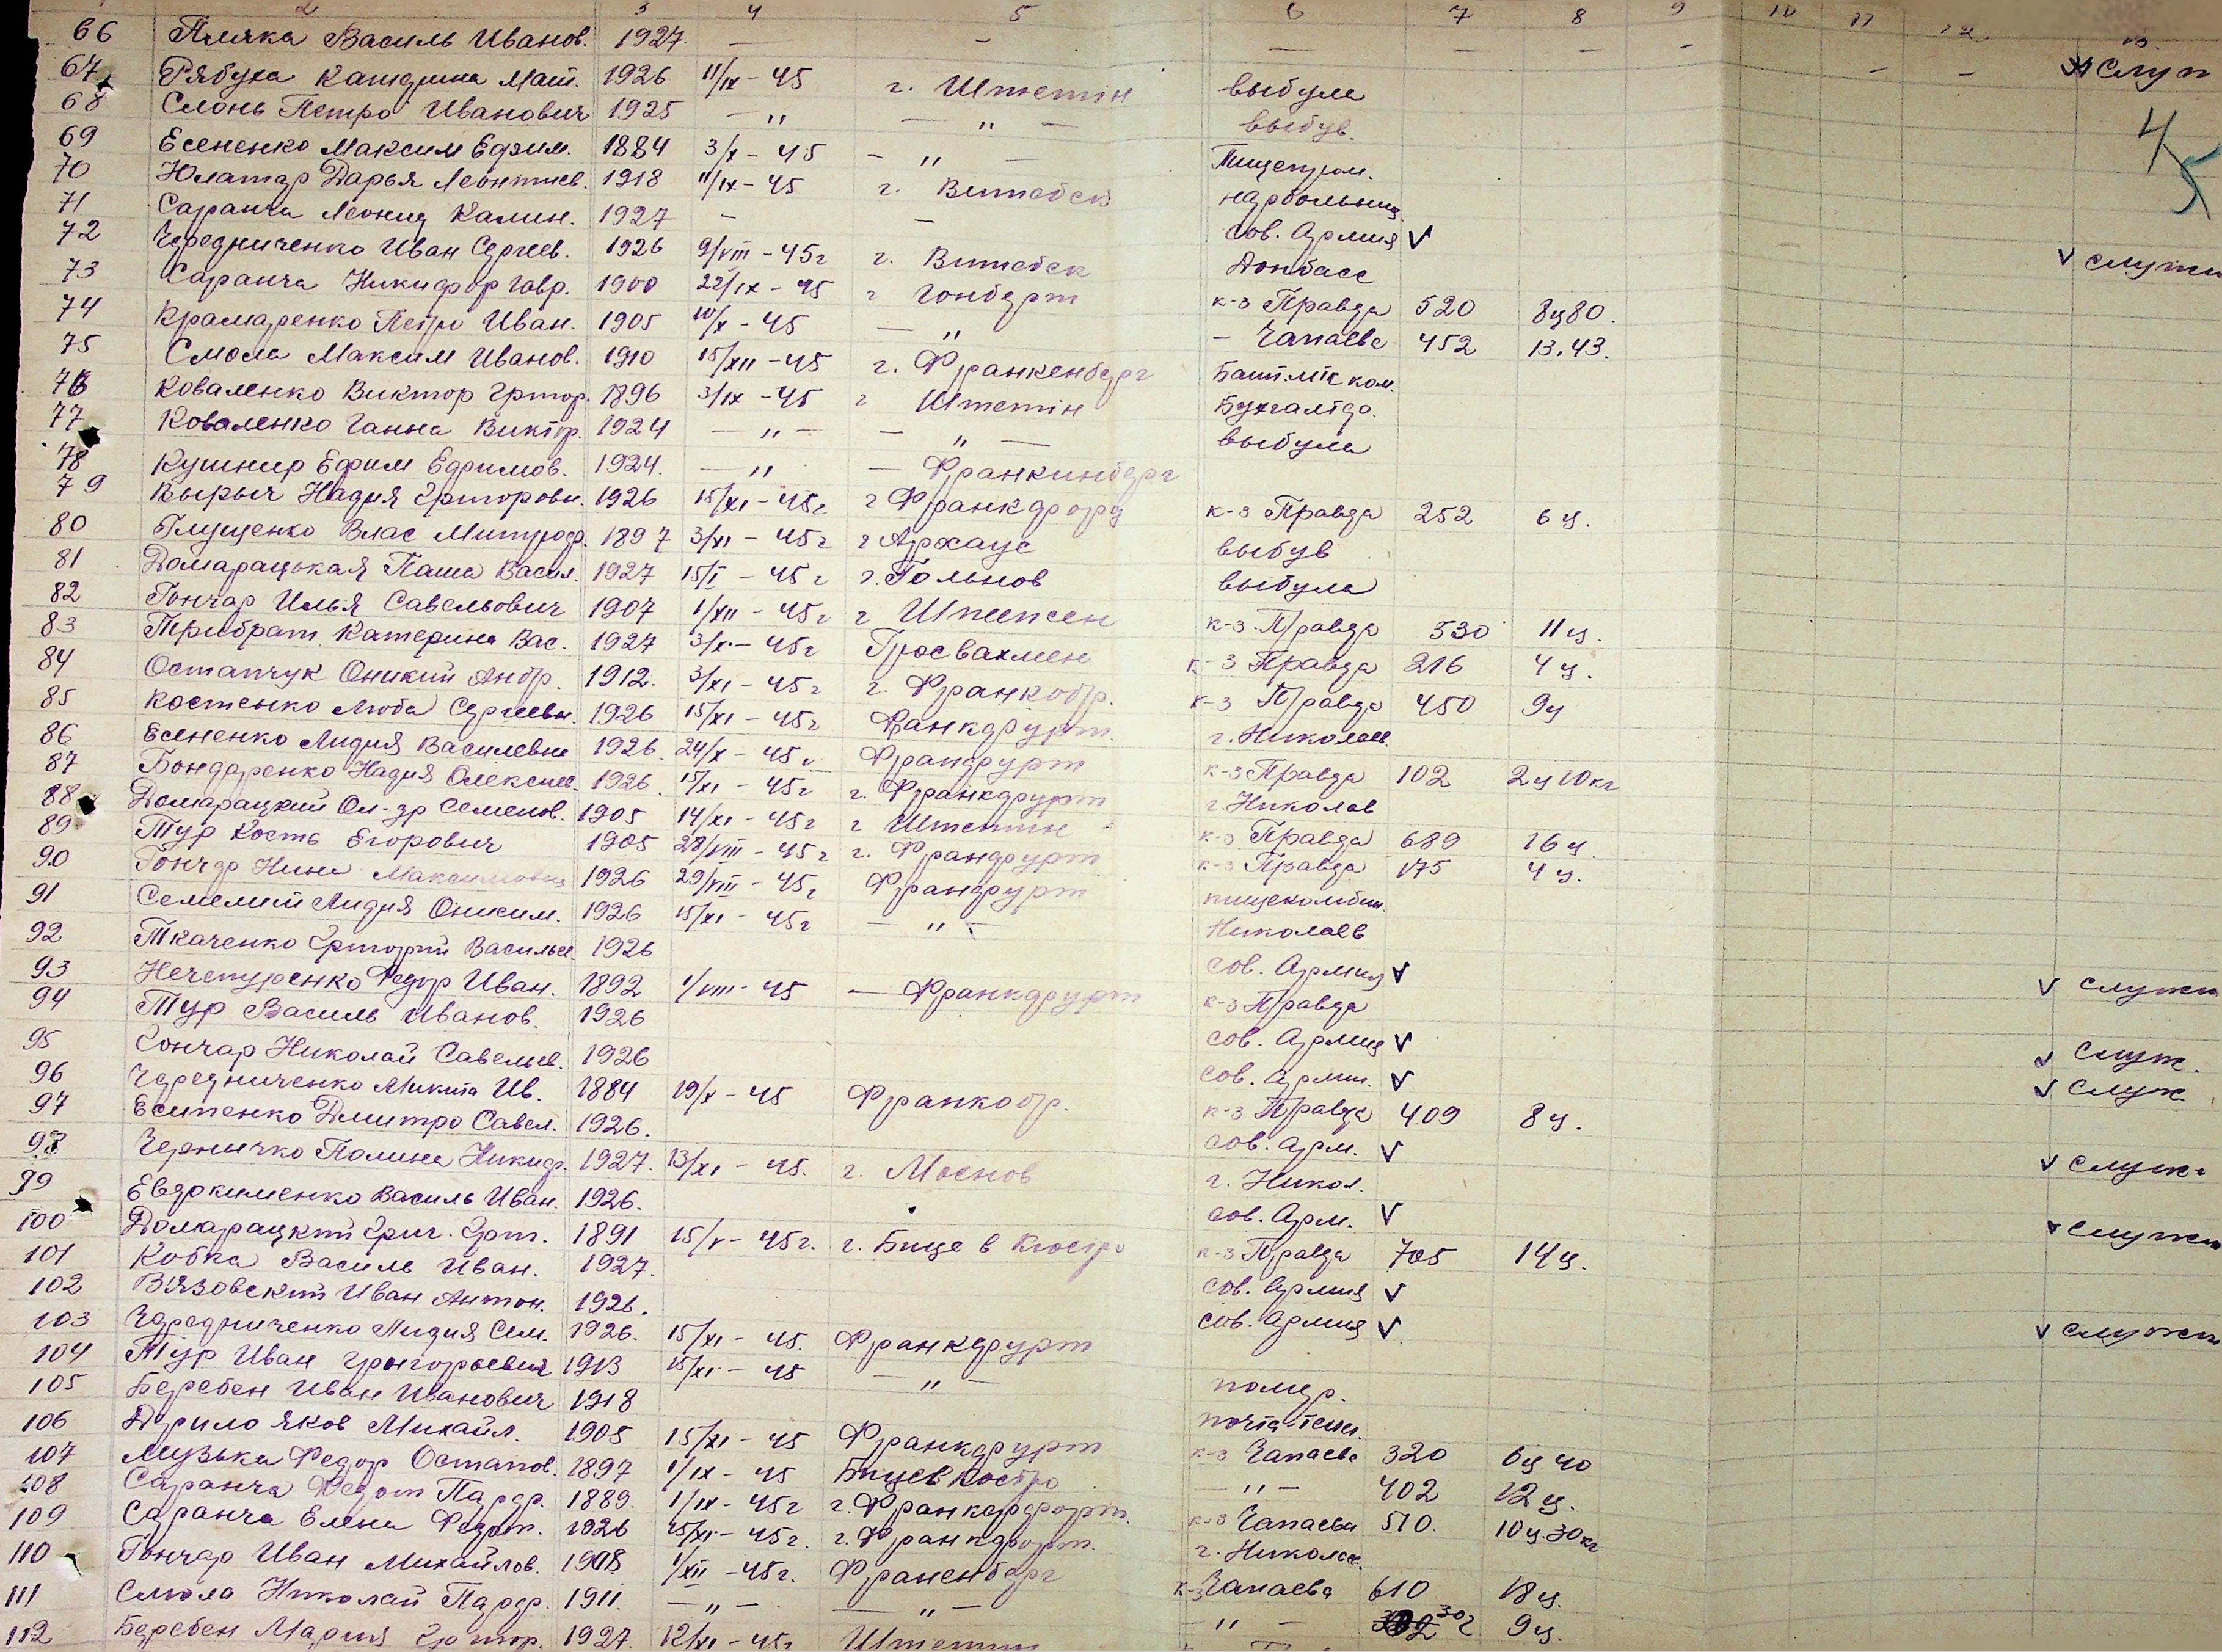 2 3 4 5 6 7 8 9 10 11 12 13.
66 Пляка Василь Иванов. 1927 — — — — — — — — Служ
67 Рябуха Катерина Мат. 1926 11/IX - 45 г. Штетін выбула
68 Слонь Петро Иванович 1925 — „ — „ — выбув.
69 Есененко Максим Ефим. 1884 3/X - 45 — „ — Пищепром.
70 Юлатар Дарья Леонтиев. 1918 11/IX - 45 г. Витебск нарбольниц.
71 Саранча Леонид Калин. 1927 — — сов. Армия V
72 Чередниченко Иван Сергеев. 1926 9/VIII - 45 г г. Витебск Донбасс V служи
73 Саранча Никифор Гавр. 1900 22/IX - 45 г Гонберт к-з Правда 520 8ц80.
74 Крамаренко Петро Иван. 1905 10/X - 45 — „ — Чапаева 452 13.43.
75 Смола Максим Иванов. 1910 15/XII - 45 г. Франкенберг
76 Коваленко Виктор Григор. 1896 3/IX - 45 г Штетін Бухгалтер.
77 Коваленко Ганна Виктор. 1924 — „ — — „ — выбула
78 Кушнир Ефим Ефимов. 1924. — „ — Франкинберг
79 Кырыч Надия Григоровн. 1926 15/XI - 45г г Франкфорд к-з Правда 252 6 ц.
80 Глущенко Влас Митроф. 1897 3/XI - 45 г г Архаус выбув
81 Домарацькая Паша Васил. 1927 15/I - 45 г г. Гольнов выбула
82 Гончар Илья Савельович 1907 1/XII - 45 г г Штепсен к-з Правда 530 11 ц.
83 Трибрат Катерина Вас. 1927 3/X - 45 г Гросвахмен к-з Правда 216 4 ц.
84 Остапчук Оникий Андр. 1912. 3/XI - 45 г г. Франкобр. к-з Правда 450 9ц
85 Костенко Люба Сергеевн. 1926 15/XI - 45г Франкфурт. г. Николаев.
86 Есененко Лидия Василевна 1926 24/X - 45 г Франфурт к-з Правда 102 2 ц 10 кг
87 Бондаренко Надия Олексиев. 1926. 15/XI - 45 г г. Франкфурт г. Николаев
88 Домарацкий Ол-др Семенов. 1905 14/XI - 45 г г Штеттин к-з Правда 689 16 ц
89 Тур Кость Егорович 1905 28/VIII - 45 г г. Франфурт к-з Правда 175 4 ц.
90 Гончар Нина Максимовна 1926 29/VIII - 45 г Франфурт пищекомбин.
91 Семелит Лидия Онисим. 1926 15/XI - 45г — „ — Николаев
92 Ткаченко Григорий Васильев. 1926 сов. Армия V
93 Нечепуренко Федор Иван. 1892 1/VIII - 45 — Франкфурт к-з Правда V служи
94 Тур Василь Иванов. 1926 сов. Армия V
95 Гончар Николай Савельев. 1926 сов. Арми. V V служ.
96 Чередниченко Микита Ив. 1884 19/X - 45 Франкобр. к-з Правда 409 8 ц. V служ
97 Есипенко Дмитро Савел. 1926. сов. Арм. V
98 Черничко Полина Никиф. 1927. 13/XI - 45. г. Моснов г. Никол. V служ.
99 Евдокименко Василь Иван. 1926. сов. Арм. V
100 Домарацкий Григ. Григ. 1891 15/V - 45г. г. Бице в Кюстро к-з Правда 705 14ц. V служи
101 Кобка Василь Иван. 1927. сов. Армия V
102 В'язовский Иван Антон. 1926. сов. Армия V
103 Чередниченко Лидия Сем. 1926. 15/XI - 45. Франкфурт V служи
104 Тур Иван Григорьевич 1913 15/XI - 45 — „ — помер.
105 Беребен Иван Иванович 1918
106 Дурило Яков Михайл. 1905 15/XI - 45 Франкфурт к-з Чапаева 320 6ц 40
107 Музыка Федор Остапов. 1897 1/IX - 45 Бицев Костро — „ — 402 12 ц.
108 Саранча Федот Парф. 1889. 1/IX - 45 г г. Франкфорт. к-з Чапаева 510. 10 ц. 30 кг
109 Саранча Елена Федот. 1926 15/XI - 45 г. г. Франкфорт. г. Николае.
110 Гончар Иван Михайлов. 1908 1/XII - 45 г. Франенберг к-з Чапаева 610 18 ц.
111 Смола Николай Парф. 1911. — „ — — „ — — „ — 302 9 ц.
112 Беребен Мария Григор. 1927. 12/XI - 45 г Штеттин
45